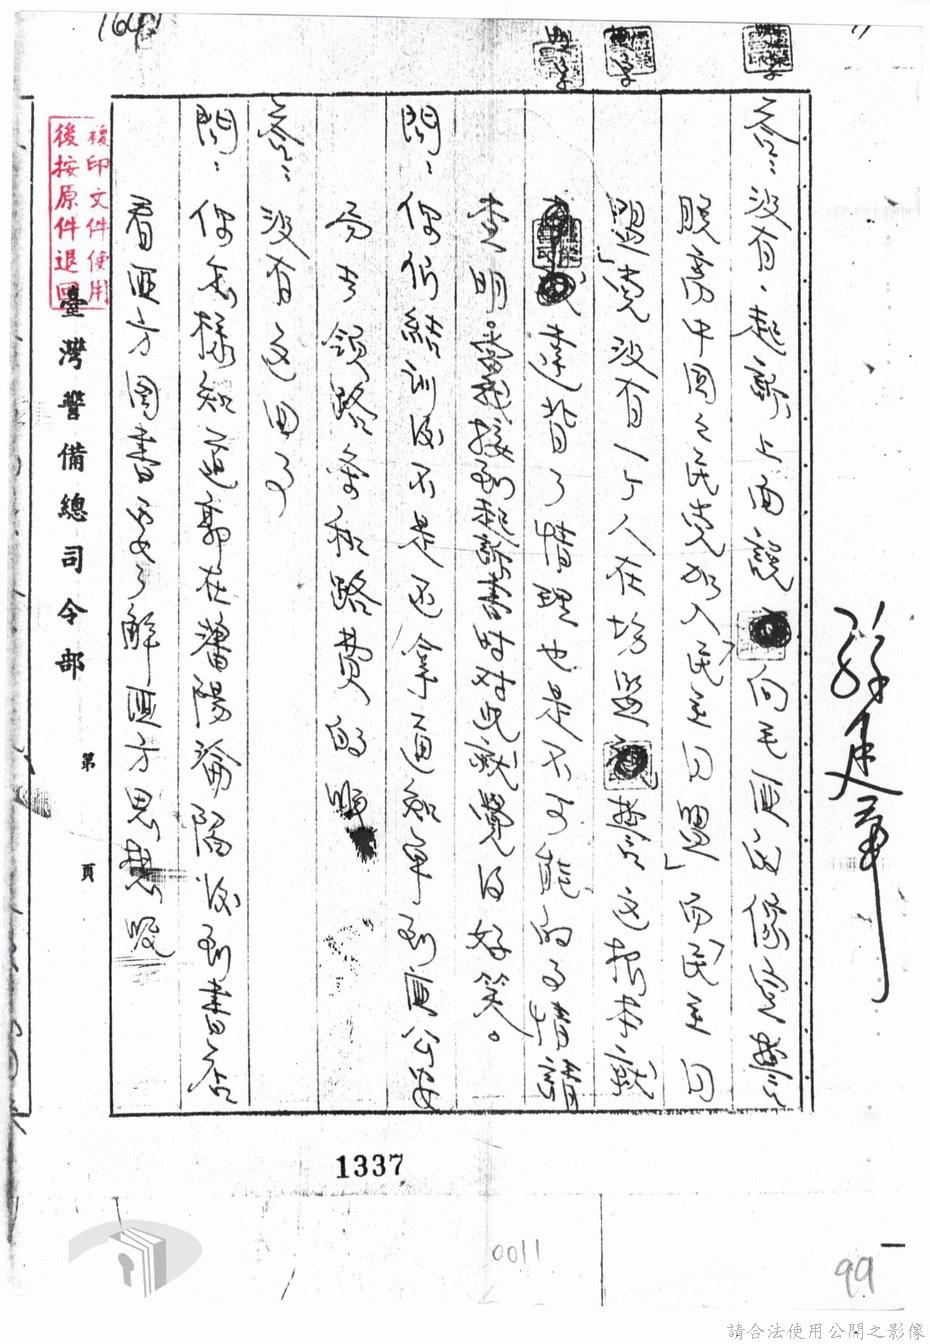 答：沒有，起訴上面說向毛匪的像宣誓
脫離中国之民党加入民主同盟」而民主同
盟「竟沒有一个人在場監誓這根本就
違背了情理也是不可能的事情請
查明。當我接到起訴書時对此就覺的好笑。
問：你們結訓後不是还拿通知单到匪公安
局去領路条和路費的嗎
答：沒有这回事
問：你怎樣知道郭在瀋陽淪陷後到書店
看匪方圖書要了解匪方思想呢
複印文件使用
後按原件退回
臺灣警備總司令部
第 頁
1337
0011
99
請合法使用公開之影像